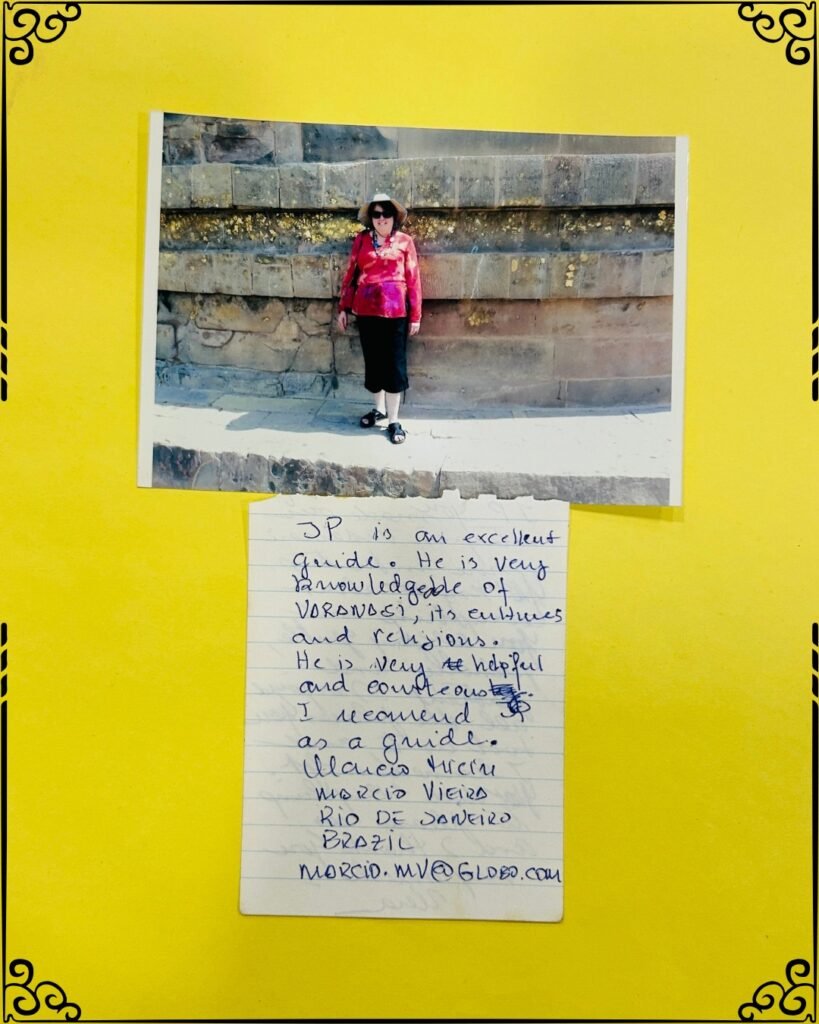 JP is an excellent
guide. He is very
knowledgeable of
VARANASI, its cultures
and religions.
He is very helpful
and courteous.
I recomend JP
as a guide.
Marcio
MARCIO VIEIRA
RIO DE JANEIRO
BRAZIL
MARCIO.MV@GLOBO.COM